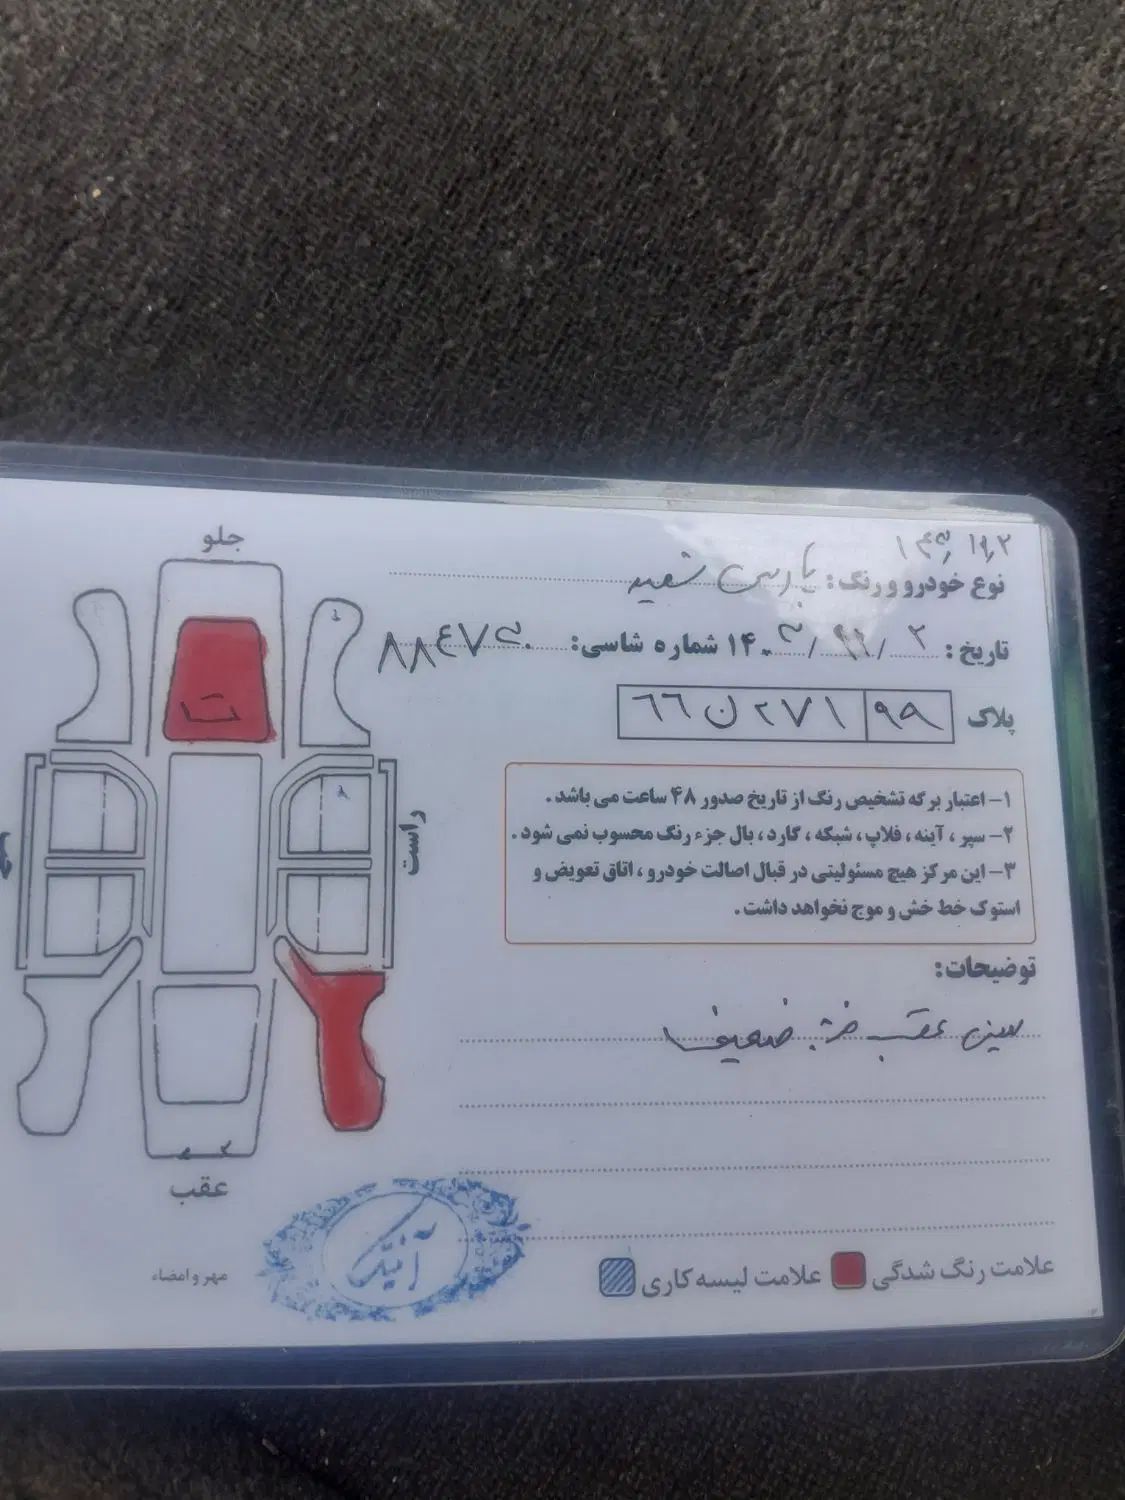 جلو
نوع خودرو و رنگ: پارس سفید
تاریخ: ۱۴۰ شماره شاسی:
پلاک ۹۹ ۲۷۱ ن ۶۶
راست
۱- اعتبار برگه تشخیص رنگ از تاریخ صدور ۴۸ ساعت می باشد.
۲- سپر، آینه، فلاپ، شبکه، گارد، بال جزء رنگ محسوب نمی شود.
۳- این مرکز هیچ مسئولیتی در قبال اصالت خودرو، اتاق تعویض و
استوک خط خش و موج نخواهد داشت.
توضیحات:
عقب ضعیف
عقب
علامت رنگ شدگی علامت لیسه کاری
مهر و امضاء